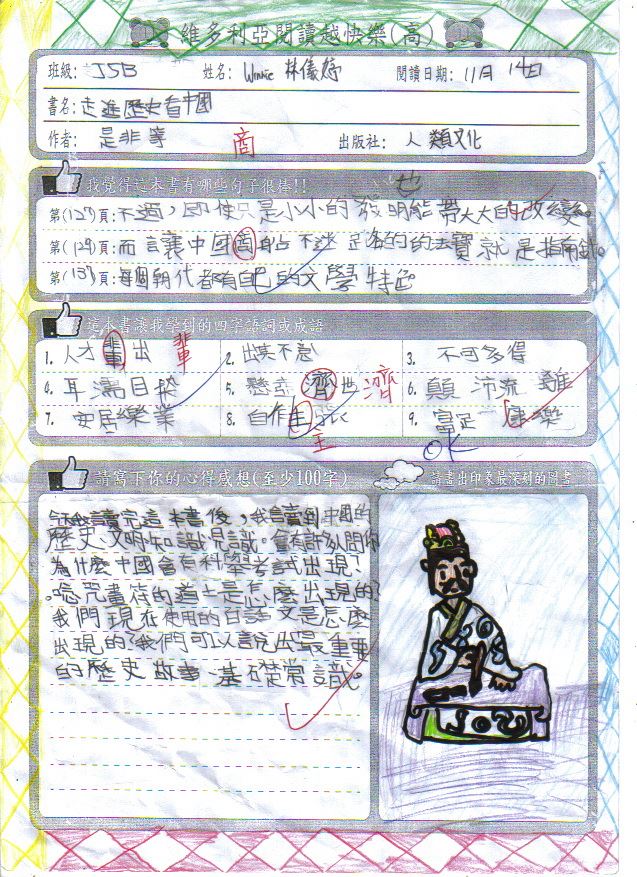 維多利亞閱讀越快樂(高)
班級: J5B 姓名: Winnie 林儀婷 閱讀日期: 11月 14日
書名: 走進歷史看中國
作者: 是非等 出版社: 人類文化
商
我覺得這本書有哪些句子很棒!!
也
第(127)頁: 不過，即使只是小小的發明能帶大大的改變。
第(129)頁: 而讓中國商船不迷路的的法寶就是指南針。
第(137)頁: 每個朝代都有自己的文學特色
這本書讓我學到的四字語詞或成語
1. 人才輩出 輩 2. 出其不意 3. 不可多得
4. 耳濡目染 5. 懸壺濟世 濟 6. 顛沛流離
7. 安居樂業 8. 自作主張 主 9. 富足康樂
OK
請寫下你的心得感想(至少100字) 請畫出印象最深刻的圖畫
今天我讀完這本書後，我讀到中國的
歷史、文明知識見識。會有許多人問你
為什麼中國會有科舉考試出現?
。唸咒畫符的道士是怎麼出現的?
我們現在使用的白話文是怎麼
出現的?我們可以說出最重要
的歷史故事基礎常識。